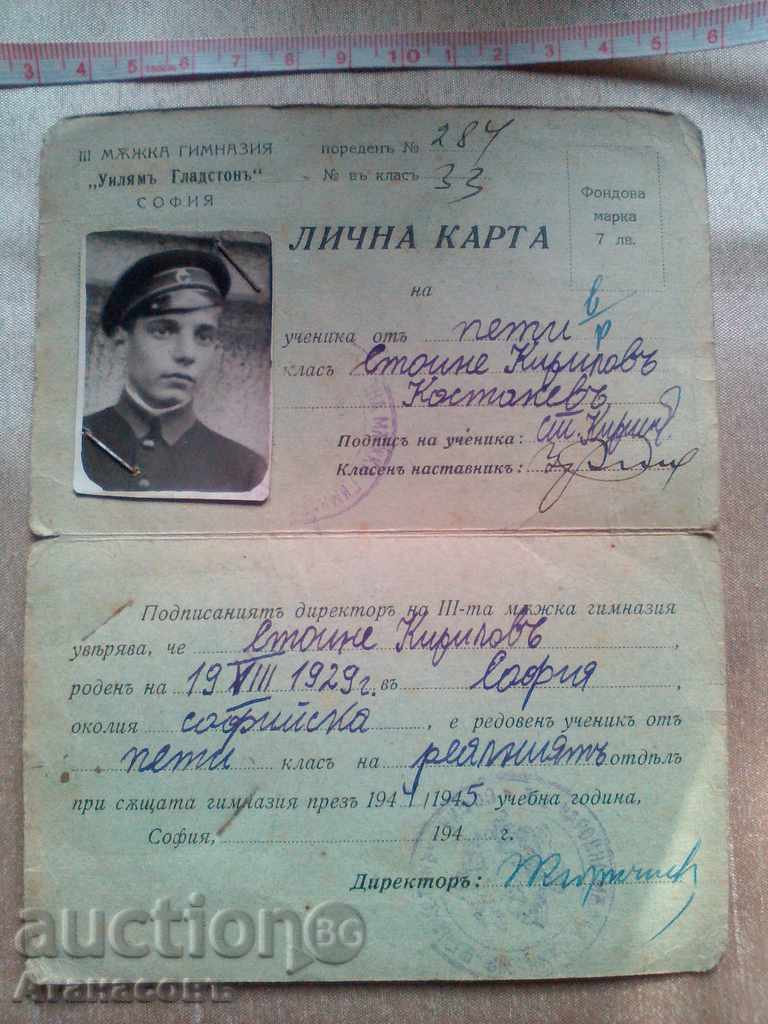 3 4 5 6 10 6 5 4 5 6
III МѪЖКА ГИМНАЗИЯ
„Уилямъ Гладстонъ"
СОФИЯ
пореденъ № 284
№ въ класъ 33
Фондова
марка
7 лв.
ЛИЧНА КАРТА
на
ученика отъ пети в
класъ Стоине Кириловъ
Костакевъ
Подпись на ученика: Ст. Кирил
Класенъ наставникъ:
Подписаниятъ директоръ на III-та мѫжка гимназия
увѣрява, че Стоине Кириловъ,
роденъ на 19 VIII 1929 г. въ София,
околия софийска, е редовенъ ученикъ отъ
пети класъ на реалниятъ отдѣлъ
при сѫщата гимназия презъ 1944/1945 учебна година,
София, 194 г.
Директоръ:
auction BG
Атанасовъ